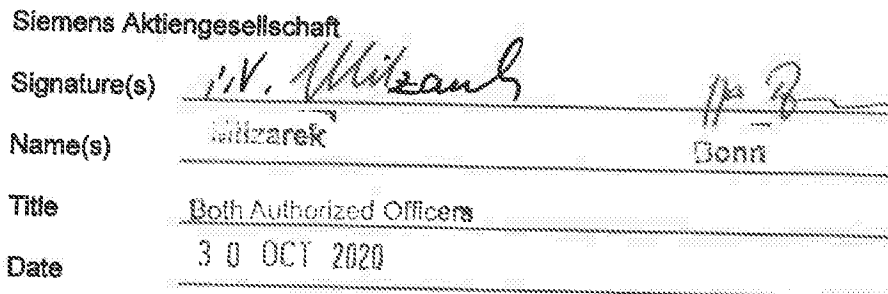 Siemens Aktiengesellschaft
Signature(s) i.V.
Name(s) Bonn
Title Both Authorized Officers
Date 30 OCT 2020